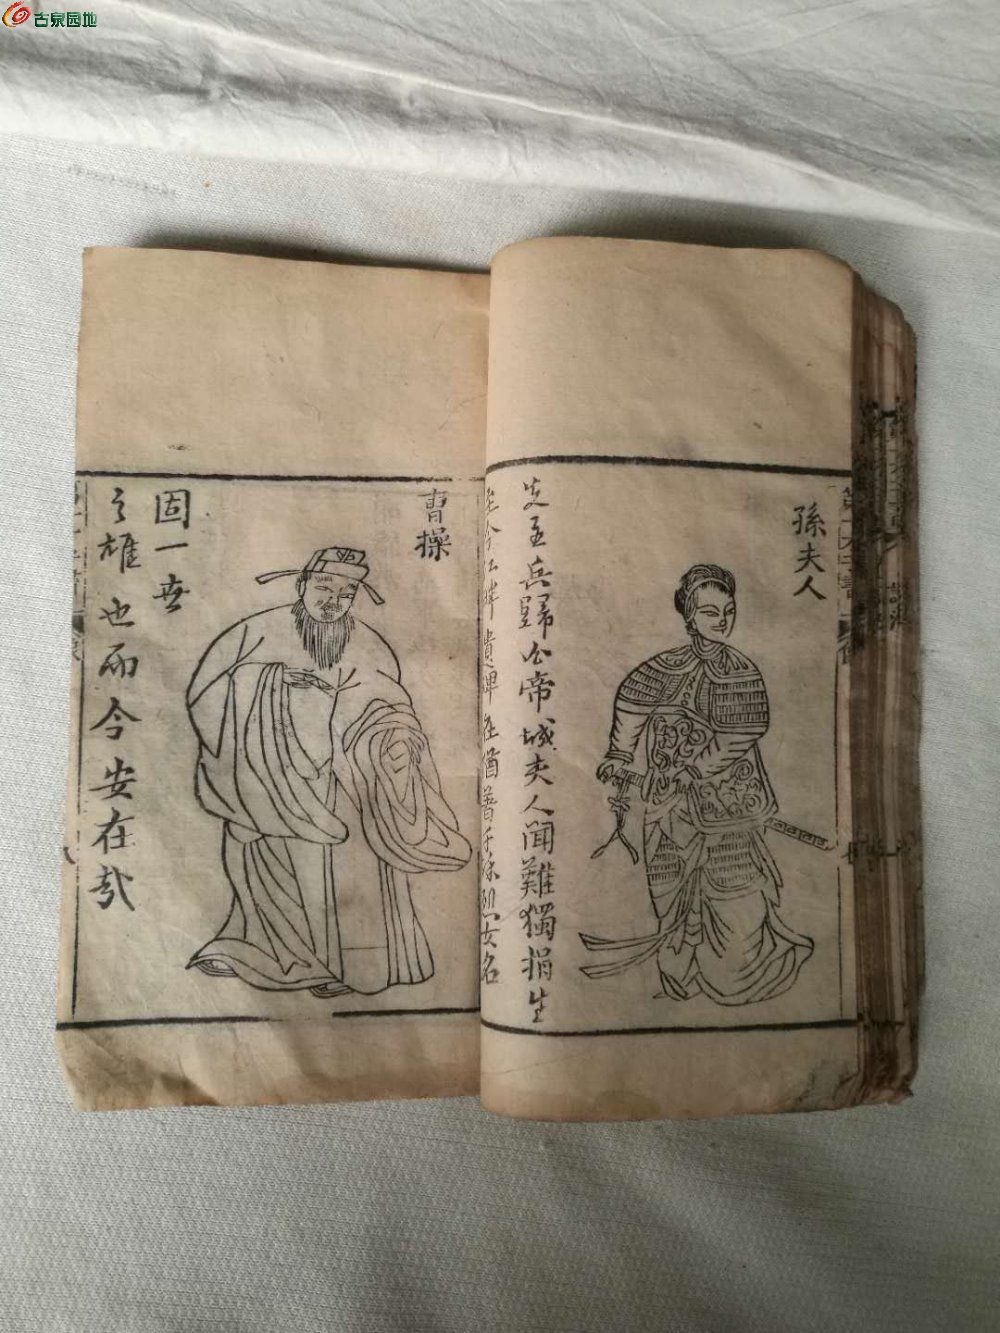 古泉园地
孫夫人
先主兵歸白帝城夫人聞難獨捐生
至今江畔遺碑在猶著千秋烈女名
曹操
固一世
之雄也而今安在哉
第一才子書
像